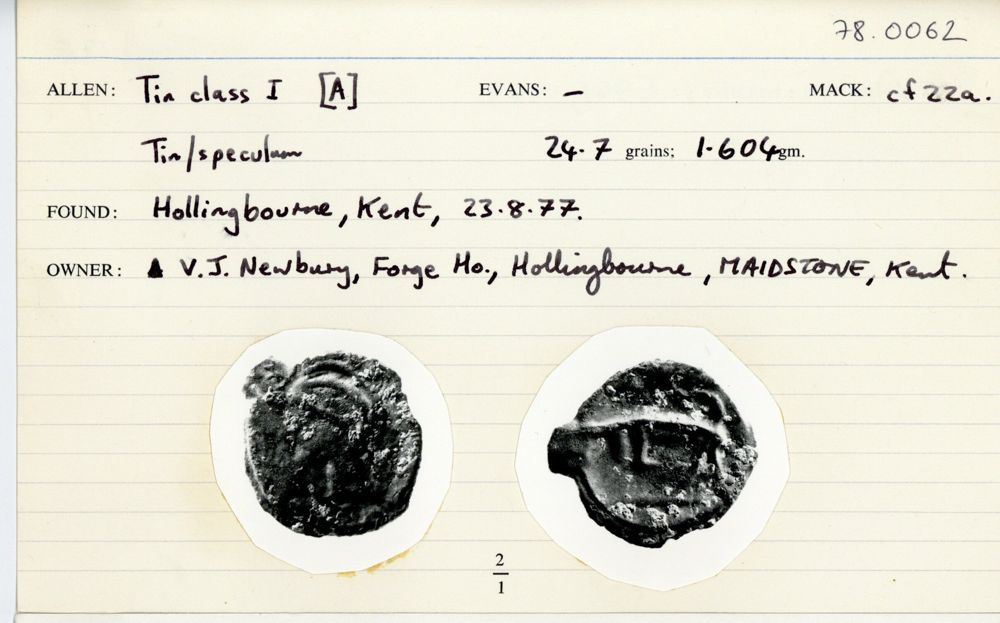 78.0062
ALLEN: Tin class I [A] EVANS: – MACK: cf 22a.
Tin/speculum 24.7 grains; 1.604 gm.
FOUND: Hollingbourne, Kent, 23.8.77.
OWNER: V.J. Newbury, Forge Ho., Hollingbourne, MAIDSTONE, Kent.
2
1